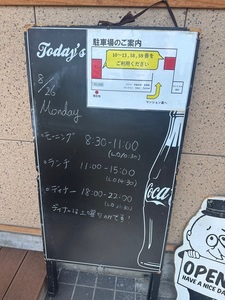 Today's
駐車場のご案内
10〜11,18,19番を
ご利用ください
8/26
Monday
モーニング 8:30-11:00
(LO10:30)
ランチ 11:00-15:00
(LO14:30)
ディナー 18:00-22:00
Coca
OPEN
HAVE A NICE DA